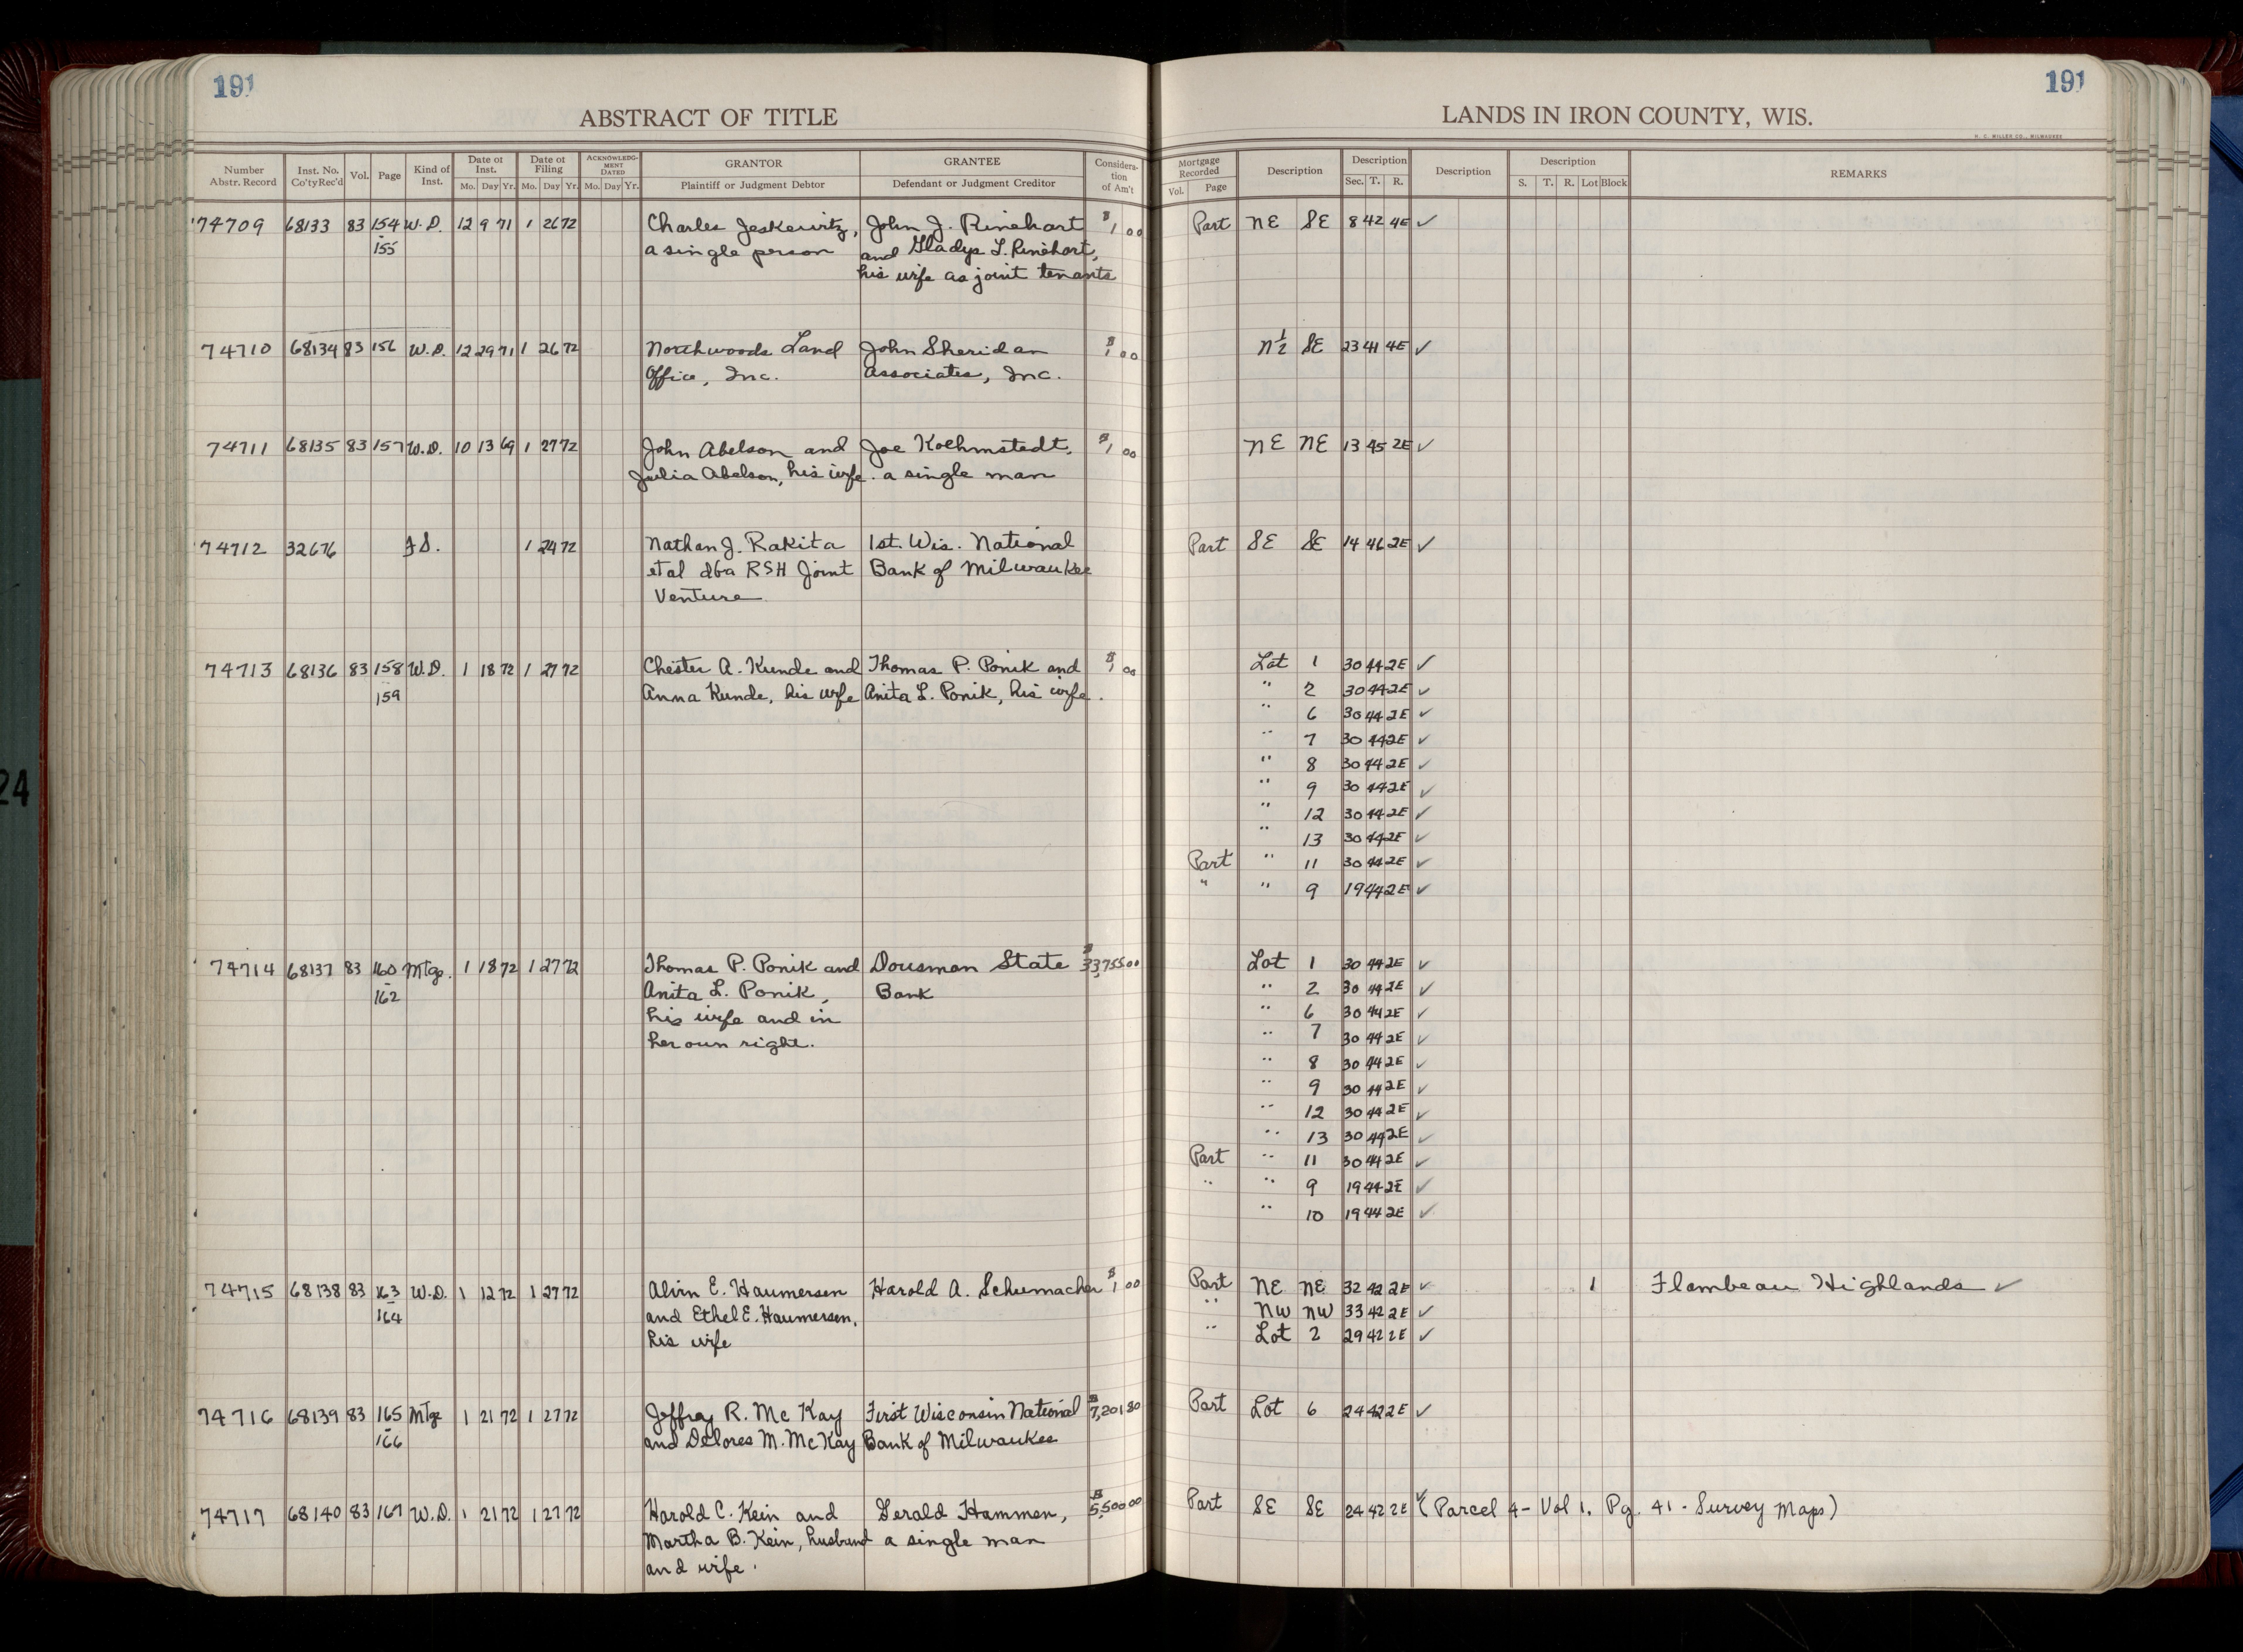 191
191
ABSTRACT OF TITLE
LANDS IN IRON COUNTY, WIS.
H. C. MILLER CO., MILWAUKEE
Number Abstr. Record Inst. No. Co'ty Rec'd Vol. Page Kind of Inst. Date of Inst. Mo. Day Yr. Date of Filing Mo. Day Yr. ACKNOWLEDGMENT DATED Mo. Day Yr. GRANTOR Plaintiff or Judgment Debtor GRANTEE Defendant or Judgment Creditor Consideration of Am't Mortgage Recorded Vol. Page Description Description Sec. T. R. Description Description S. T. R. Lot Block REMARKS
74709 68133 83 154 W.D. 12 9 71 1 26 72 Charles Jeskewitz, John J. Rinehart $1,00 Part NE SE 8 42 4E ✓
155 a single person and Gladys L. Rinehart,
his wife as joint tenants
74710 68134 83 156 W.D. 12 29 71 1 26 72 Northwoods Land John Sheridan $1 00 N½ SE 23 41 4E ✓
Office, Inc. Associates, Inc.
74711 68135 83 157 W.D. 10 13 69 1 27 72 John Abelson and Joe Koehmstedt, $1 00 NE NE 13 45 2E ✓
Julia Abelson, his wife. a single man
74712 32676 F.S. 1 24 72 Nathan J. Rakita 1st. Wis. National Part SE SE 14 46 2E ✓
et al dba RSH Joint Bank of Milwaukee
Venture
74713 68136 83 158 W.D. 1 18 72 1 27 72 Chester A. Kunde and Thomas P. Ponik and $1 00 Lot 1 30 44 2E ✓
159 Anna Kunde, his wife Anita L. Ponik, his wife. " 2 30 44 2E ✓
" 6 30 44 2E ✓
" 7 30 44 2E ✓
" 8 30 44 2E ✓
" 9 30 44 2E ✓
" 12 30 44 2E ✓
" 13 30 44 2E ✓
Part " 11 30 44 2E ✓
" " 9 19 44 2E ✓
74714 68137 83 160 Mtge. 1 18 72 1 27 72 Thomas P. Ponik and Dousman State $33,755.00 Lot 1 30 44 2E ✓
162 Anita L. Ponik, Bank " 2 30 44 2E ✓
his wife and in " 6 30 44 2E ✓
her own right. " 7 30 44 2E ✓
" 8 30 44 2E ✓
" 9 30 44 2E ✓
" 12 30 44 2E ✓
" 13 30 44 2E ✓
Part " 11 30 44 2E ✓
" " 9 19 44 2E ✓
" 10 19 44 2E ✓
74715 68138 83 163 W.D. 1 12 72 1 27 72 Alvin E. Haumersen Harold A. Schumacher $1,00 Part NE NE 32 42 2E ✓ 1 Flambeau Highlands ✓
164 and Ethel E. Haumersen, " NW NW 33 42 2E ✓
his wife " Lot 2 29 42 2E ✓
74716 68139 83 165 Mtge 1 21 72 1 27 72 Jeffrey R. McKay First Wisconsin National $7,201.80 Part Lot 6 24 42 2E ✓
166 and Delores M. McKay Bank of Milwaukee
74717 68140 83 167 W.D. 1 21 72 1 27 72 Harold C. Kein and Gerald Hammen, $5,500 00 Part SE SE 24 42 2E ✓ (Parcel 4 - Vol 1. Pg. 41 - Survey Maps)
Martha B. Kein, husband a single man
and wife.
24